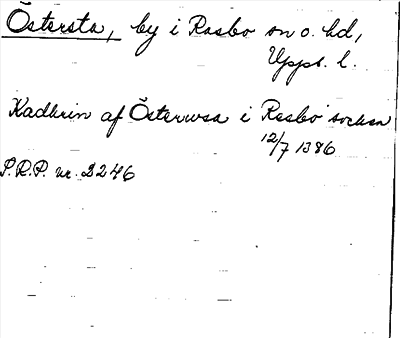 Östersta, by i Rasbo sn o. hd,
Upps. l.
Kadhrin af Österwsa i Rasbo sockn
12/7 1386
S.R.P. nr. 2246